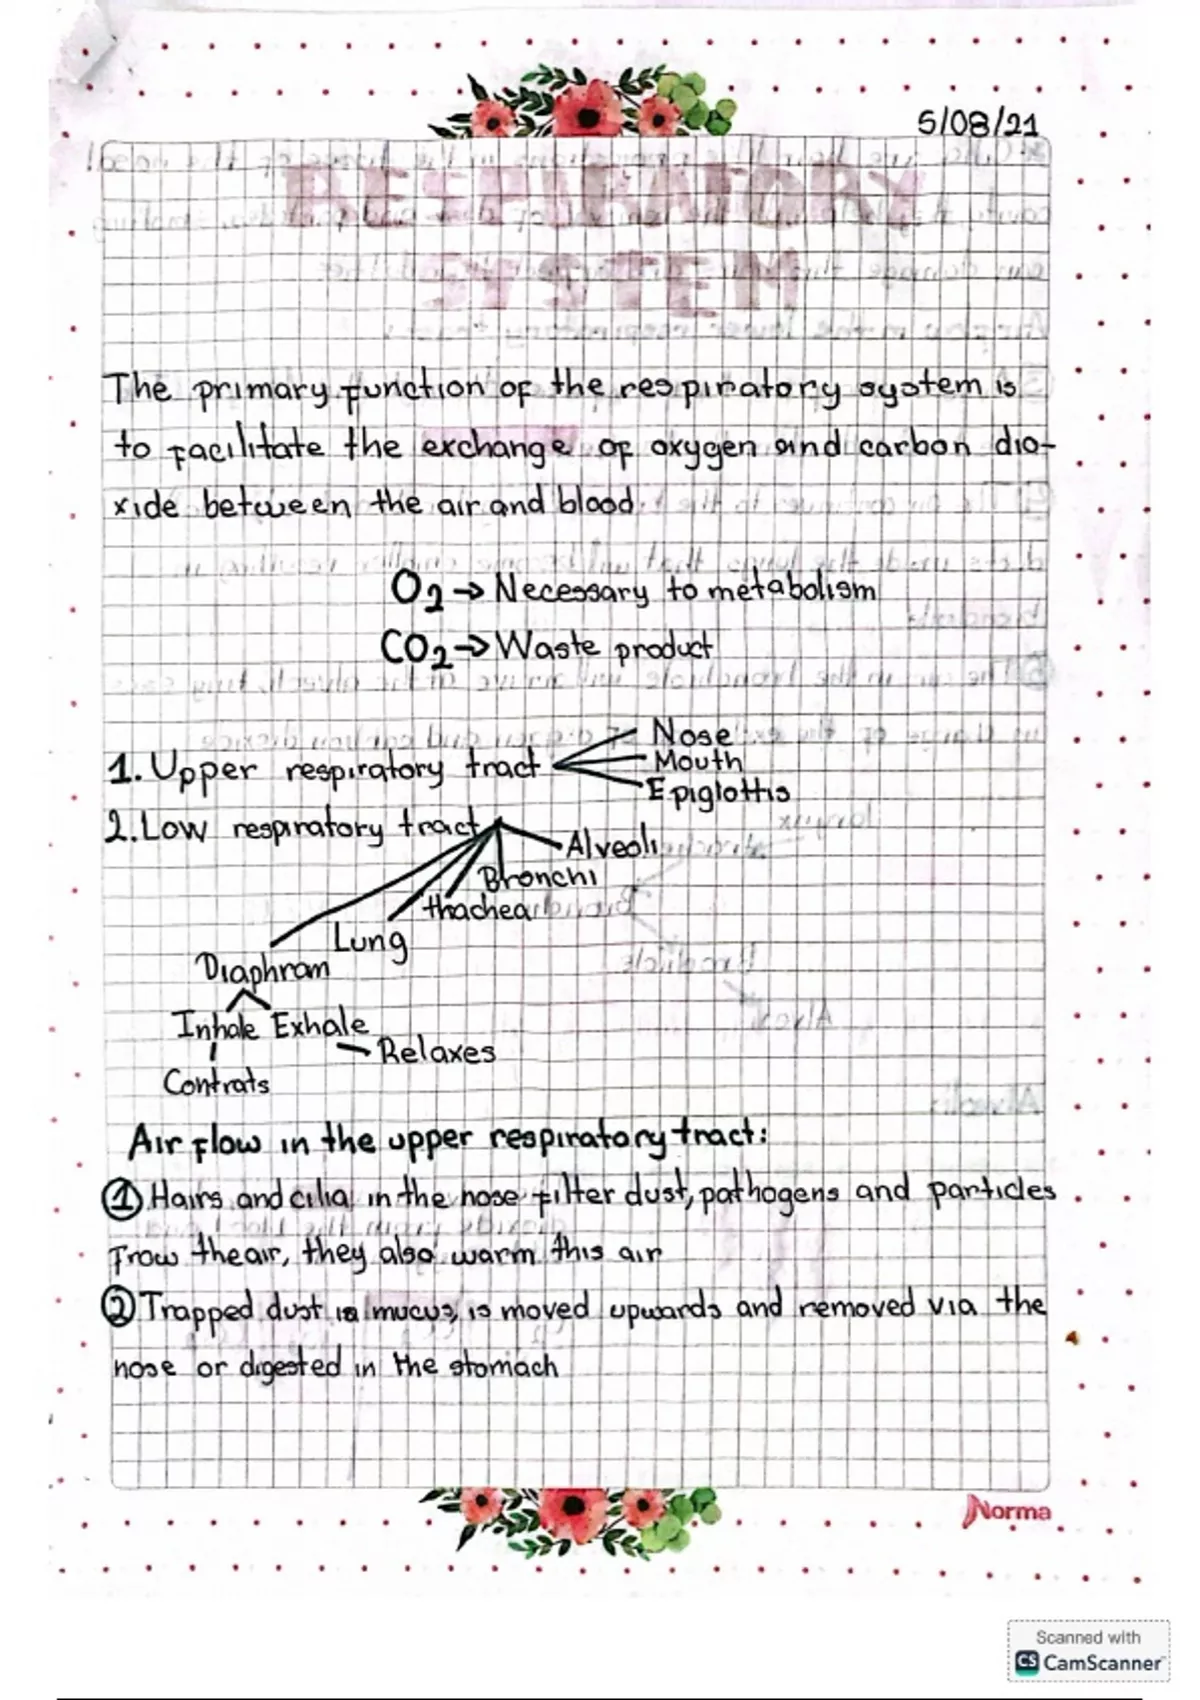 5/08/21
RESPIRATORY
SYSTEM
The primary function of the respiratory system is
to facilitate the exchange of oxygen and carbon dio-
xide between the air and blood.
O2 → Necessary to metabolism
CO2 → Waste product
Nose
1. Upper respiratory tract
Mouth
Epiglottis
2. Low respiratory tract
Alveoli
Bronchi
thachea
Lung
Diaphram
Inhale Exhale
Relaxes
Contrats
Air flow in the upper respiratory tract:
① Hairs and cilia, in the nose filter dust, pathogens and particles
frow the air, they also warm this air
② Trapped dust in mucus, is moved upwards and removed via the
nose or digested in the stomach
Norma
Scanned with
CS CamScanner